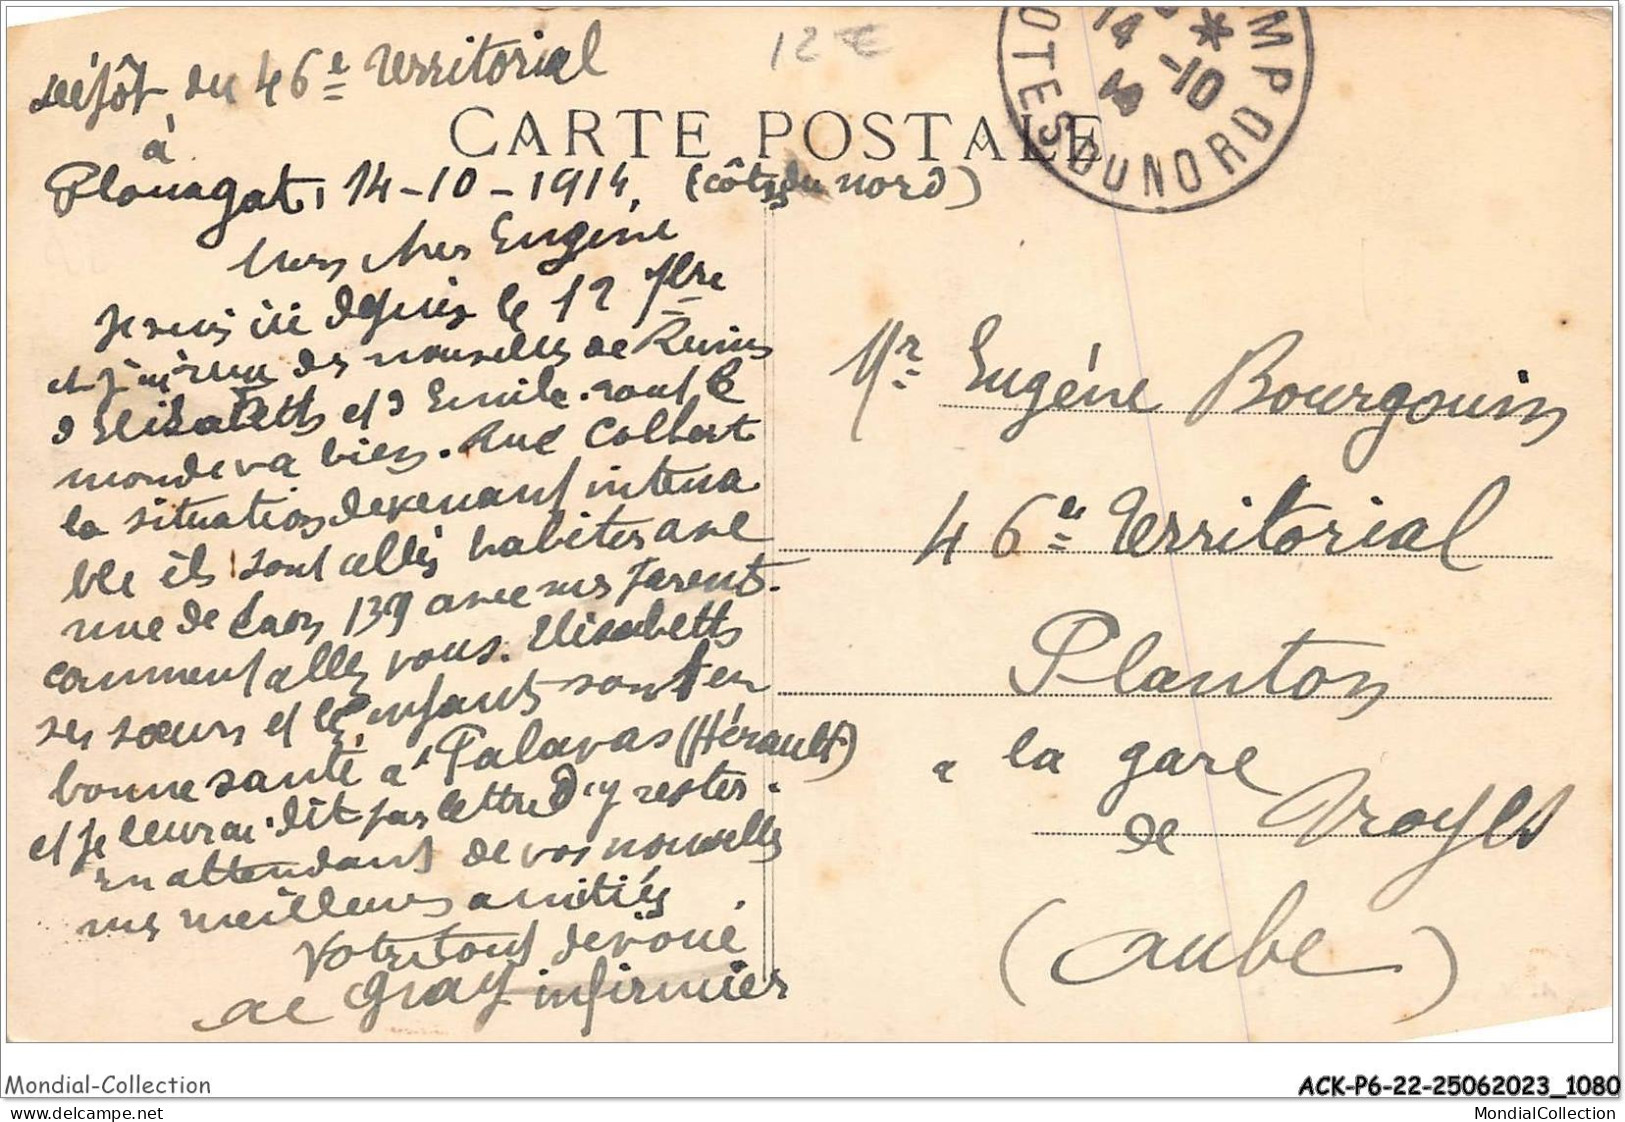 12 €
Dépôt du 46e Territorial
à
Plouagat, 14-10-1914, (côtes du nord)
CARTE POSTALE
MP
14 10
14
COTES DU NORD
Mon cher Eugène
Je suis ici depuis le 12 7bre
et j'ai reçu des nouvelles de Reims
d'Elisabeth et d'Emile. tout le
monde va bien. Rue Colbert
la situation devenant intena
ble ils sont allés habiter
rue de Laon 139 avec mes Parents.
comment allez vous. Elisabeth
ses soeurs et les enfants sont en
bonne santé à Palavas (Hérault)
et je leur ai dit par lettre d'y rester.
en attendant de vos nouvelles
mes meilleures amitiés
Votre tout dévoué
Gray infirmier
Mr Eugène Bourgouin
46e Territorial
Planton
à la gare
de Troyes
(Aube)
Mondial-Collection
ACK-P6-22-25062023_1080
MondialCollection